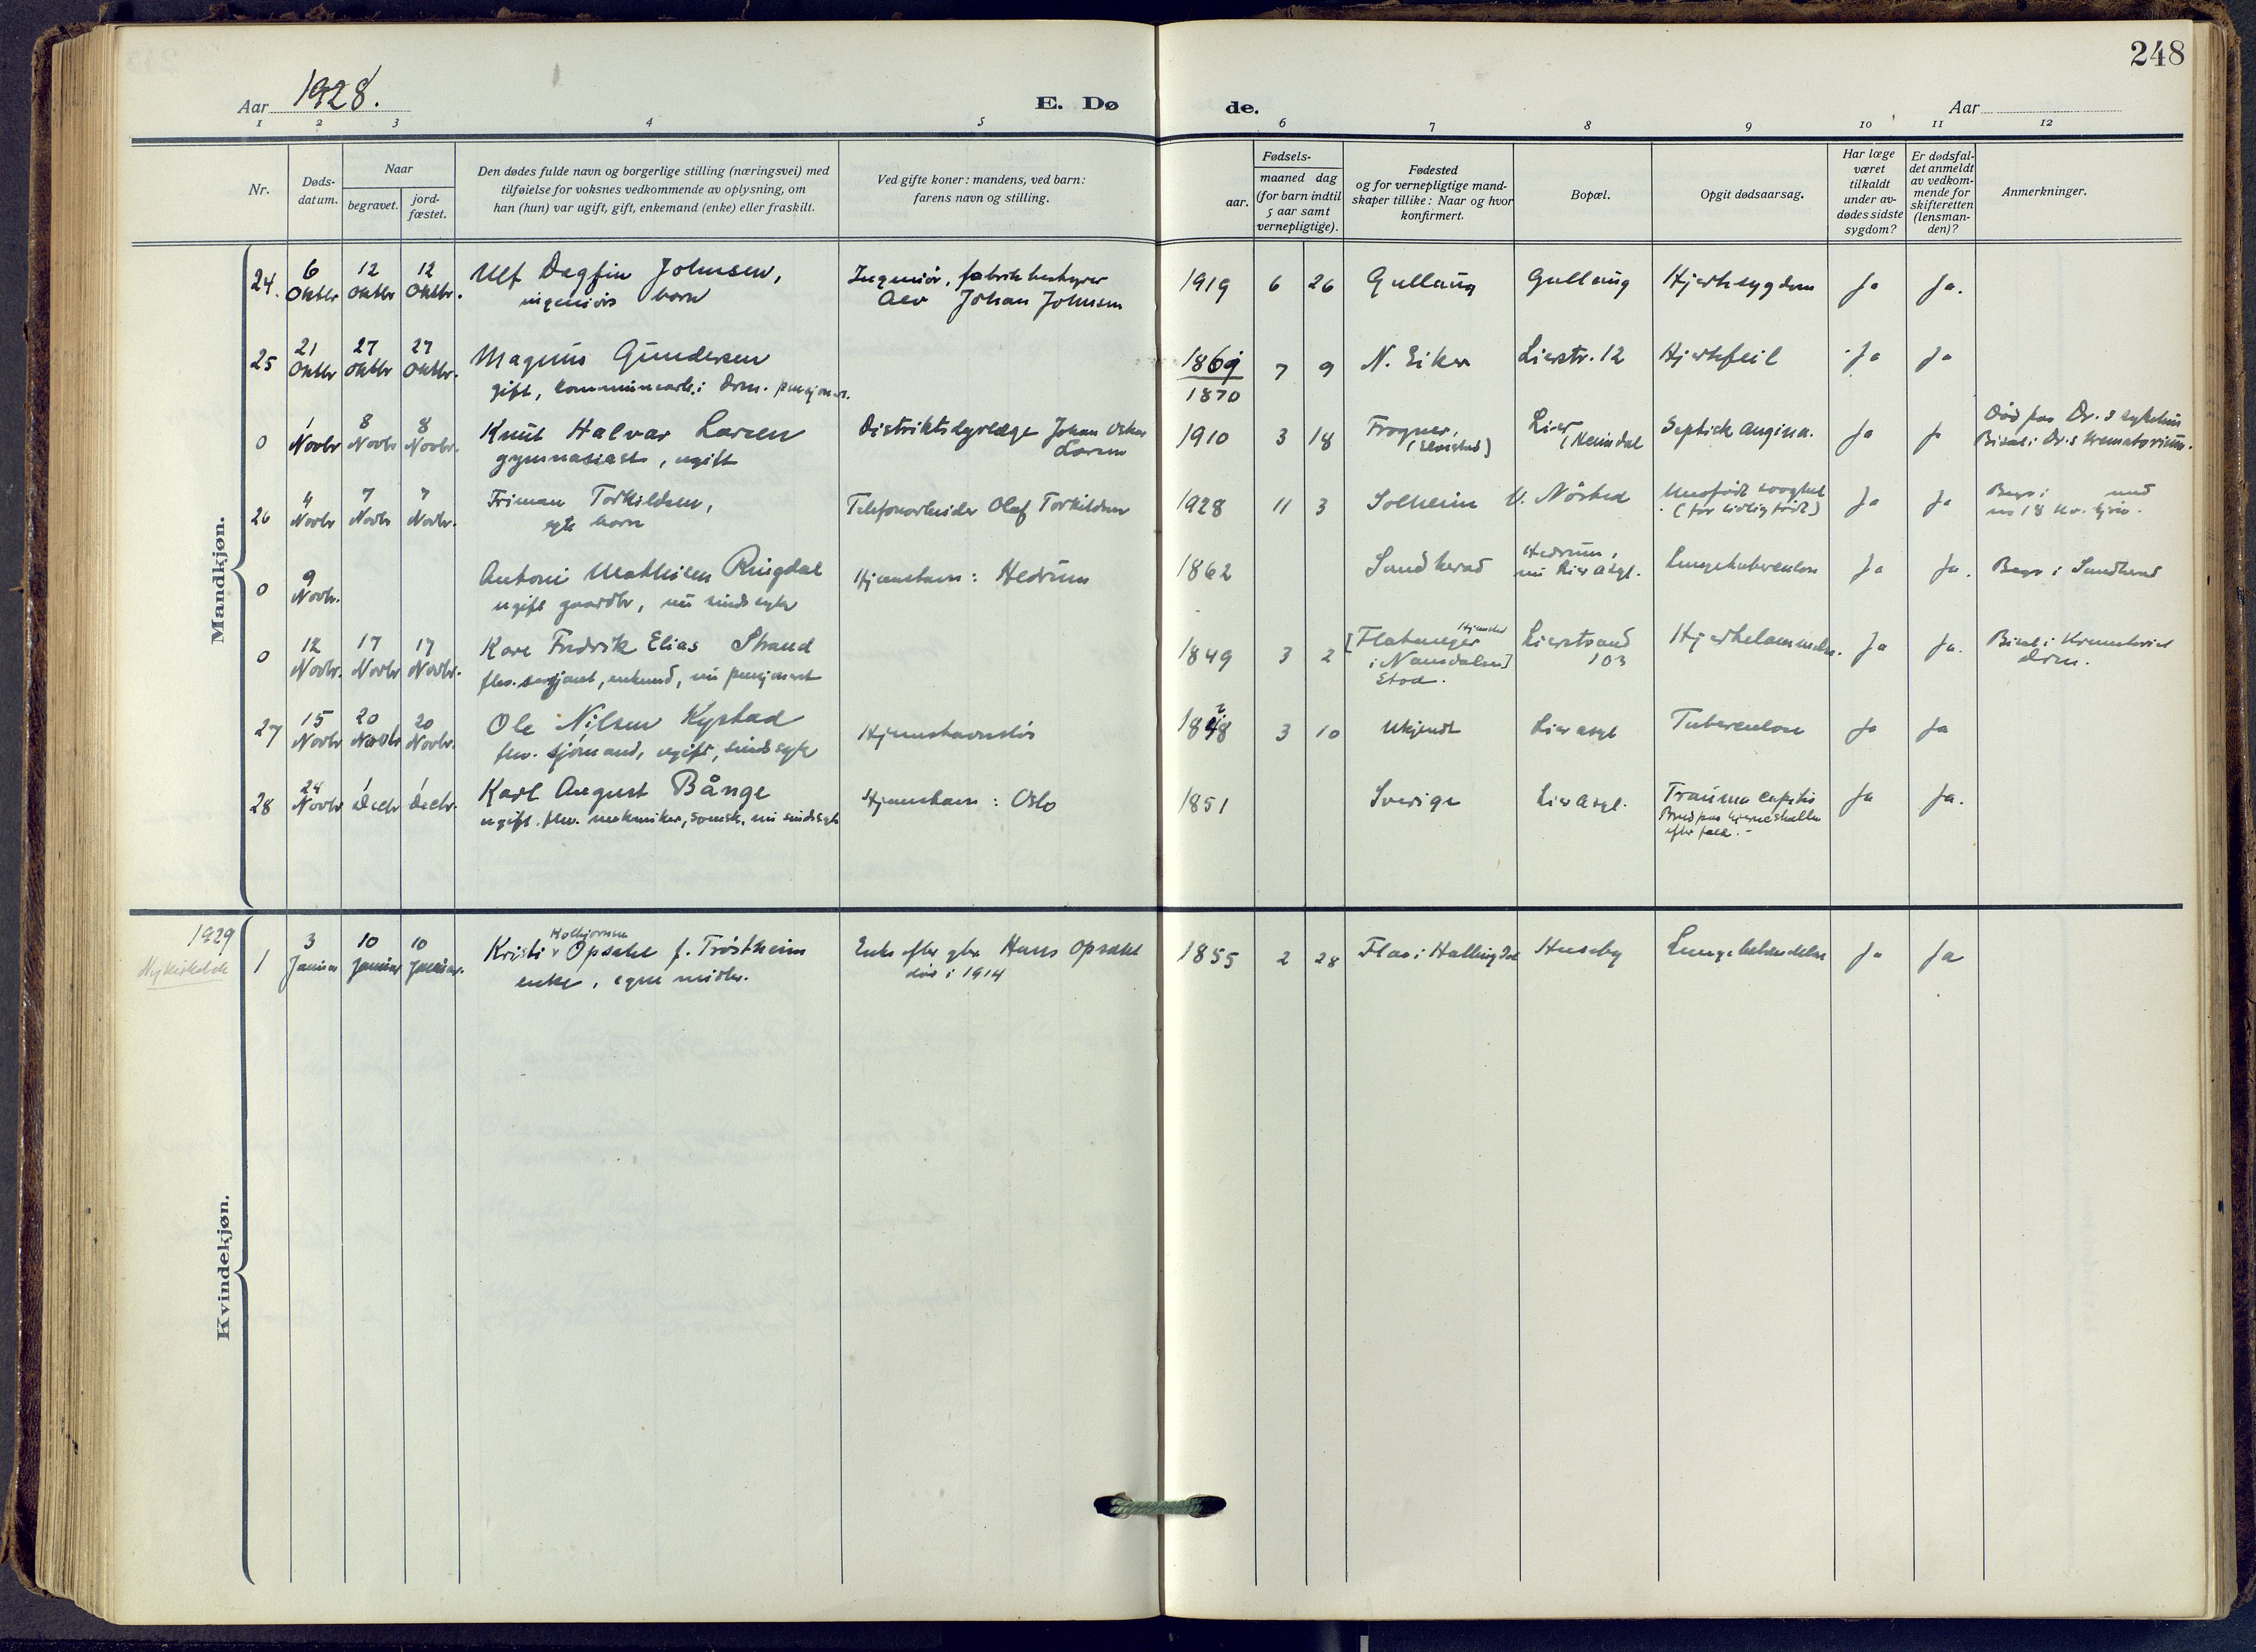 248
Aar 1928.
E. Dø
de.
Aar
1 2 3 4 5 6 7 8 9 10 11 12
Nr.
Døds-
datum.
Naar
begravet.
jord-
fæstet.
Den dødes fulde navn og borgerlige stilling (næringsvei) med
tilføielse for voksnes vedkommende av oplysning, om
han (hun) var ugift, gift, enkemand (enke) eller fraskilt.
Ved gifte koner: mandens, ved barn:
farens navn og stilling.
Fødsels-
aar.
maaned dag
(for barn indtil
5 aar samt
vernepligtige).
Fødested
og for vernepligtige mand-
skaper tillike: Naar og hvor
konfirmert.
Bopæl.
Opgit dødsaarsag.
Har læge
været
tilkaldt
under av-
dødes sidste
sygdom?
Er dødsfal-
det anmeldt
av vedkom-
mende for
skifteretten
(lensman-
den)?
Anmerkninger.
Mandkjøn.
24. 6 Oktbr 12 Oktbr 12 Oktbr. Ulf Dagfin Johnsen, Ingeniør, fabrikbestyrer 1919 6 26 Gullaug Gullaug Hjertesygdom Ja Ja.
ingeniørs barn Johan Johnsen
25 21 Oktbr 27 Oktbr 27 Oktbr. Magnus Gundersen 1869 7 9 N. Eiker Lierstr. 12 Hjertefeil Ja Ja
gift, 1870
0 1 Novbr 8 Novbr 8 Novbr. Knut Halvar Larsen Distriktsdyrlæge Johan Oskar 1910 3 18 Frogner, Lier Septisk angina. Ja Ja Død paa Dr.s sykehus
gymnasiast, ugift Larsen Bisat i Dr.s Krematorium.
26 4 Novbr 7 Novbr 7 Novbr. Friman Torkildsen, Telefonarbeider Olaf Torkildsen 1928 11 3 Solheim V. Nøsted Medfødt svaghet Ja Ja
egte barn (for tidlig født)
0 9 Novbr. Antoni Mathisen Ringdal Hjemstavn: Hedrum 1862 Sandherad Hedrum, Lungetuberculose Ja Ja. Begr i Sandherad
ugift gaardbr, nu sindssyk nu Lier asyl.
0 12 Novbr. 17 Novbr 17 Novbr. Kare Fredrik Elias Strand 1849 3 2 [Flatanger Lierstrand Hjertelammelse. Ja Ja. Bisat i Krematoriet
flw. sersjant, enkemd, nu pensjonist i Namdalen] 103 Drm.
Stod.
27 15 Novbr 20 Novbr 20 Novbr. Ole Nilsen Kystad Hjemstavnsløs 1848 3 10 Ukjendt Lier asyl Tuberculose Ja Ja
flw. sjømand, ugift, sindssyk
28 24 Novbr 1 Decbr 1 Decbr. Karl August Bånge Hjemstavn: Oslo 1851 Sverige Lier asyl. Trauma capitis Ja Ja.
ugift. flw. mekaniker, svensk, nu sindssyk Brud paa hjerneskallen
efter fald.
Kvindekjøn.
1929
1 3 Januar 10 Januar 10 Januar. Kristi Kolbjørnsen Opsahl f. Trøstheim Enke efter gbr Hans Opsahl 1855 2 28 Flaa i Hallingdal Huseby Lungebetændelse Ja Ja
enke, egne midler. død i 1914